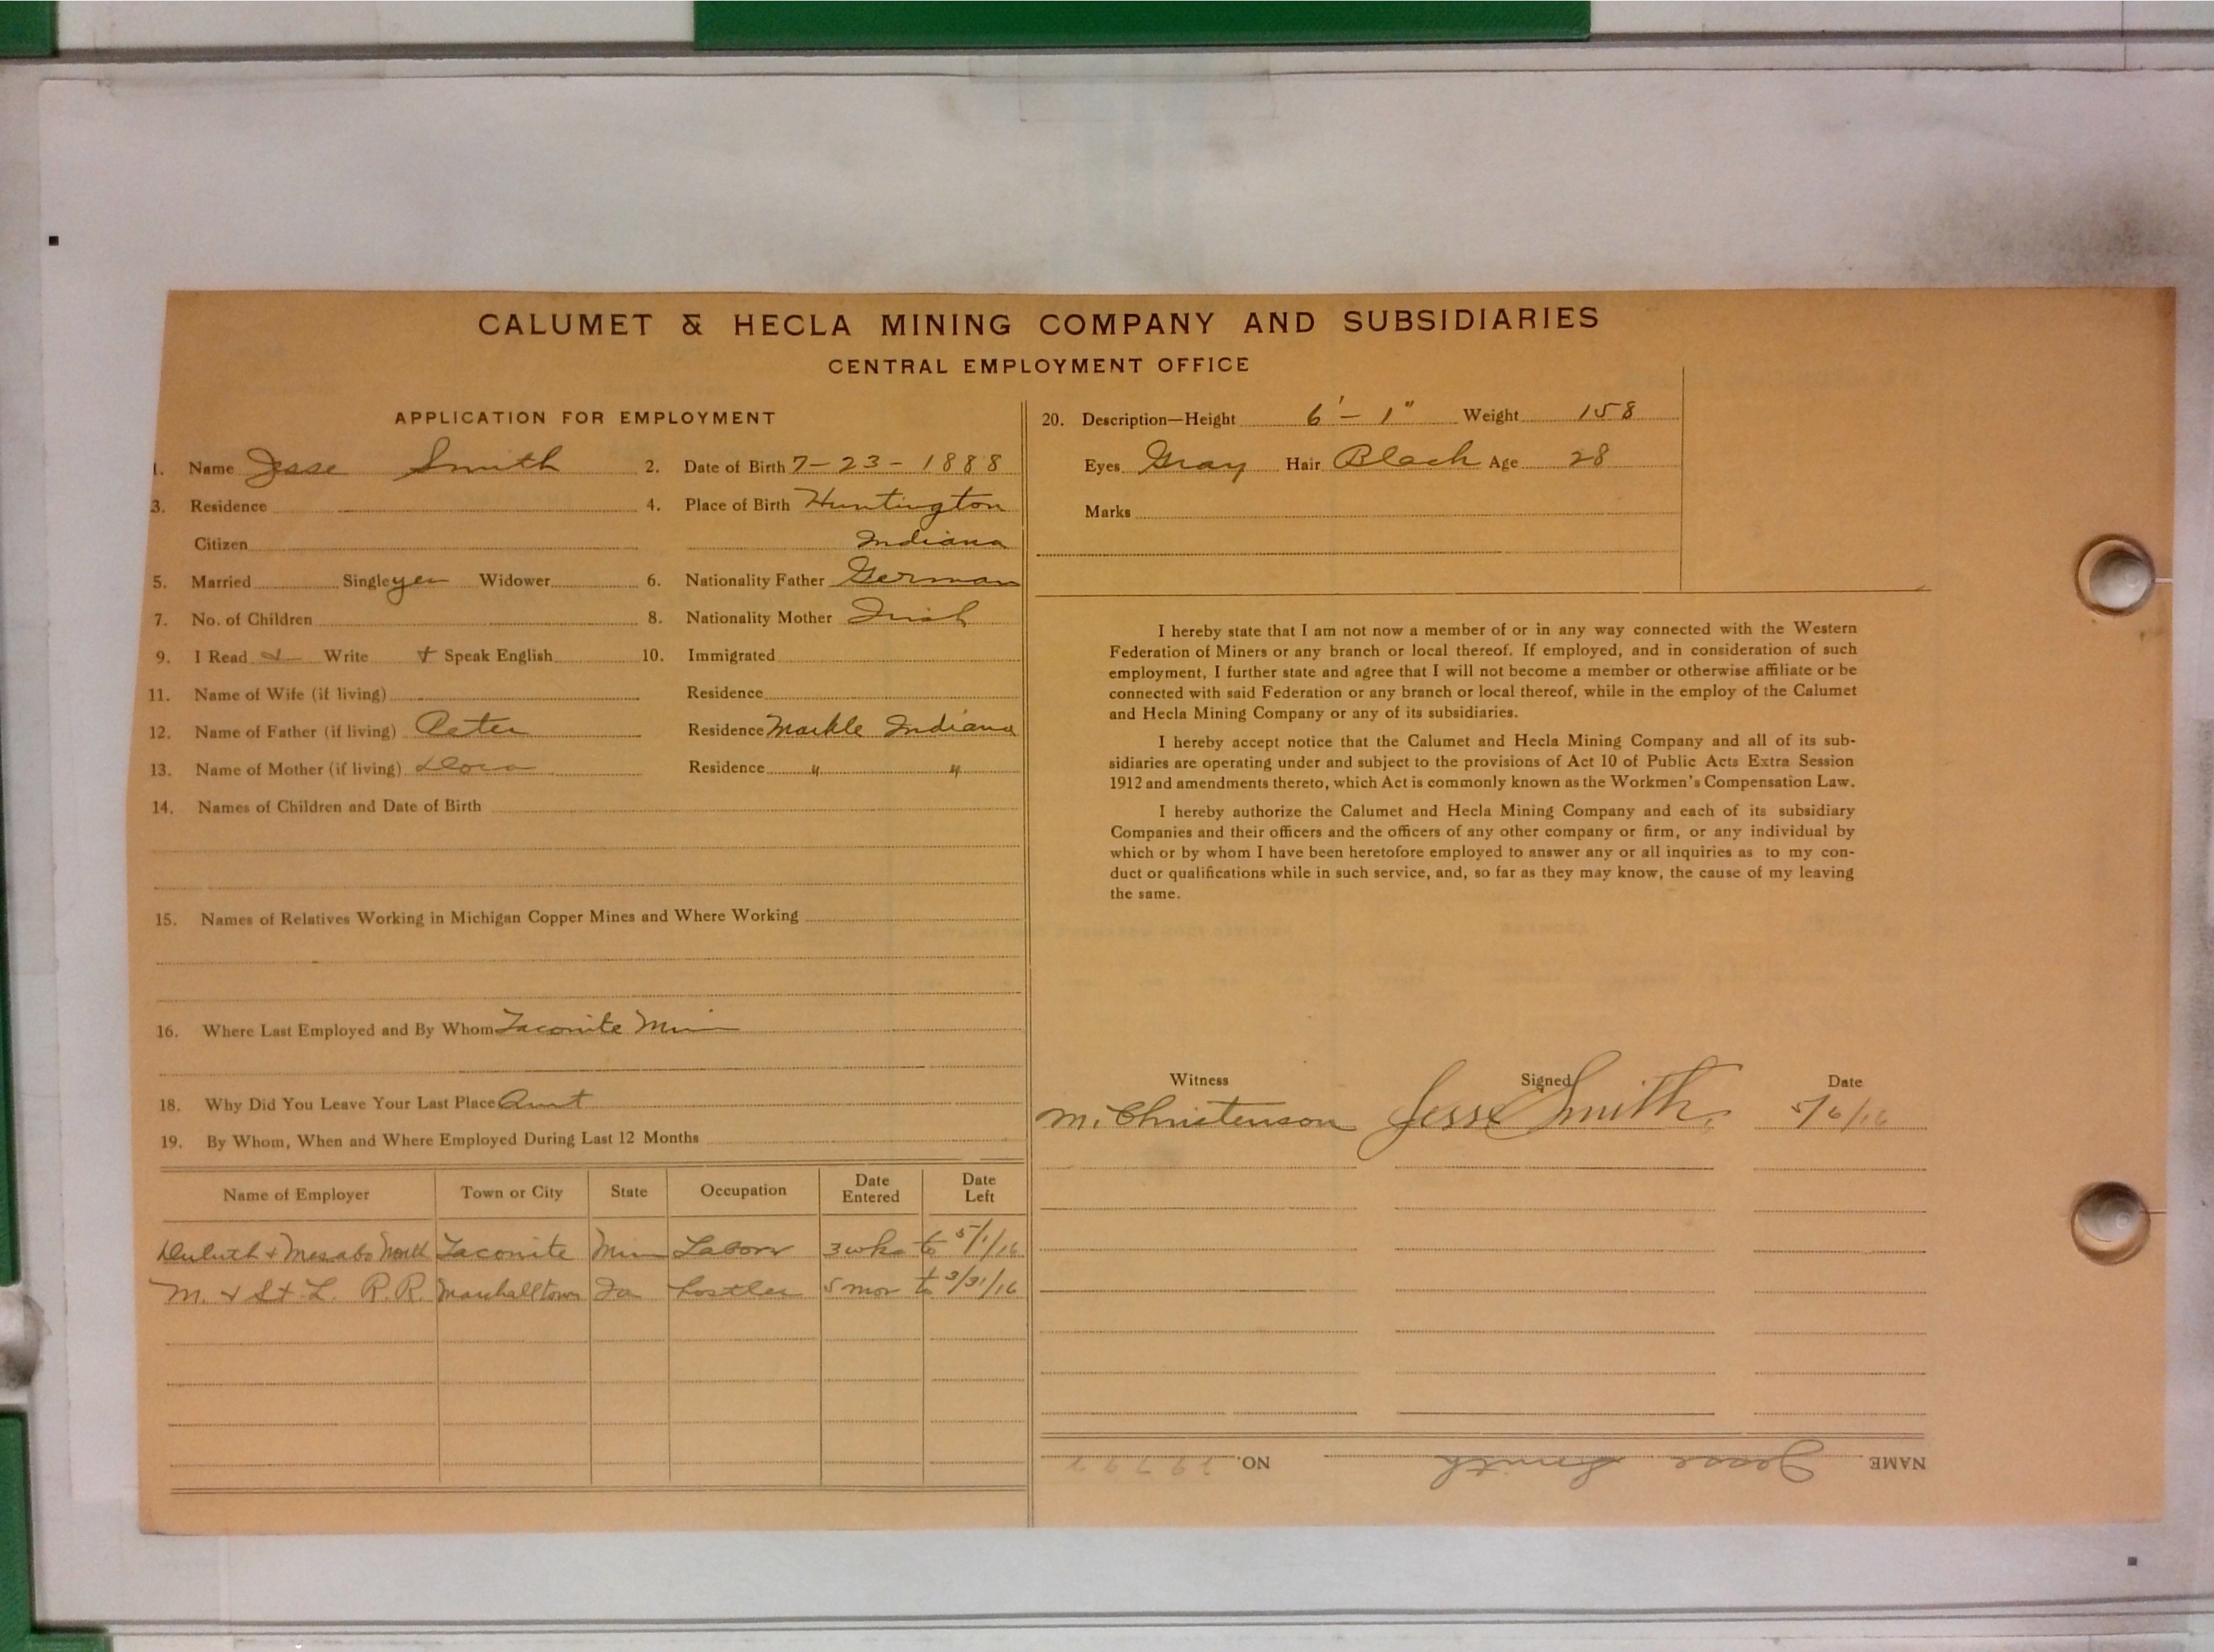 CALUMET & HECLA MINING COMPANY AND SUBSIDIARIES
CENTRAL EMPLOYMENT OFFICE
APPLICATION FOR EMPLOYMENT
1. Name Jesse Smith 2. Date of Birth 7-23-1888
3. Residence 4. Place of Birth Huntington
Citizen Indiana
5. Married Single yes Widower 6. Nationality Father German
7. No. of Children 8. Nationality Mother Irish
9. I Read + Write + Speak English 10. Immigrated
11. Name of Wife (if living) Residence
12. Name of Father (if living) Peter Residence Markle Indiana
13. Name of Mother (if living) Dora Residence " "
14. Names of Children and Date of Birth
15. Names of Relatives Working in Michigan Copper Mines and Where Working
16. Where Last Employed and By Whom Taconite Min
18. Why Did You Leave Your Last Place
19. By Whom, When and Where Employed During Last 12 Months
Name of Employer Town or City State Occupation Date Entered Date Left
Duluth + Mesabo Taconite Min Labor 3 wks to 5/1/16
M. & St. L. R.R. Marshalltown Ia hostler 5 mos to 3/31/16
20. Description—Height 6'-1" Weight 158
Eyes Gray Hair Black Age 28
Marks
I hereby state that I am not now a member of or in any way connected with the Western
Federation of Miners or any branch or local thereof. If employed, and in consideration of such
employment, I further state and agree that I will not become a member or otherwise affiliate or be
connected with said Federation or any branch or local thereof, while in the employ of the Calumet
and Hecla Mining Company or any of its subsidiaries.
I hereby accept notice that the Calumet and Hecla Mining Company and all of its sub-
sidiaries are operating under and subject to the provisions of Act 10 of Public Acts Extra Session
1912 and amendments thereto, which Act is commonly known as the Workmen's Compensation Law.
I hereby authorize the Calumet and Hecla Mining Company and each of its subsidiary
Companies and their officers and the officers of any other company or firm, or any individual by
which or by whom I have been heretofore employed to answer any or all inquiries as to my con-
duct or qualifications while in such service, and, so far as they may know, the cause of my leaving
the same.
Witness Signed Date
M. Christenson Jesse Smith. 5/6/16
NAME Jesse Smith NO.